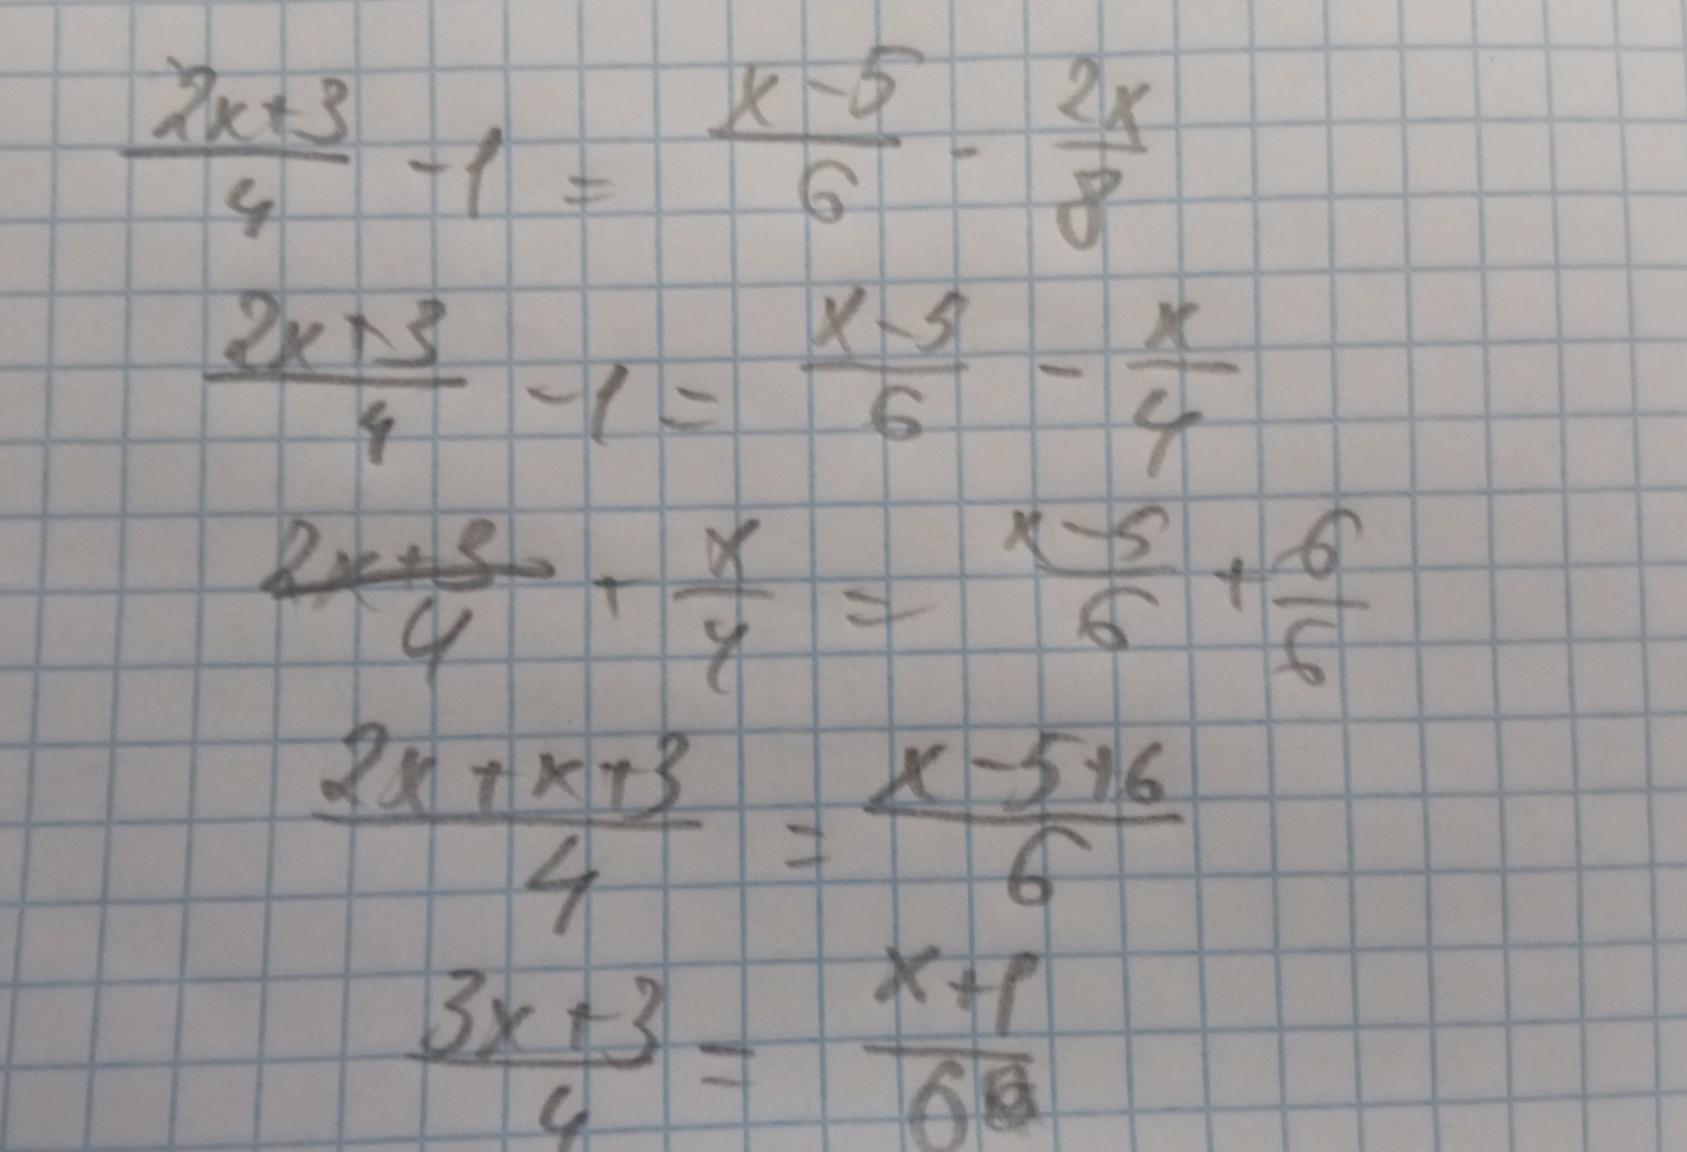 (2x+3)/4 - 1 = (x-5)/6 - 2x/8
(2x+3)/4 - 1 = (x-5)/6 - x/4
(2x+3)/4 + x/4 = (x-5)/6 + 6/6
(2x+x+3)/4 = (x-5+6)/6
(3x+3)/4 = (x+1)/6